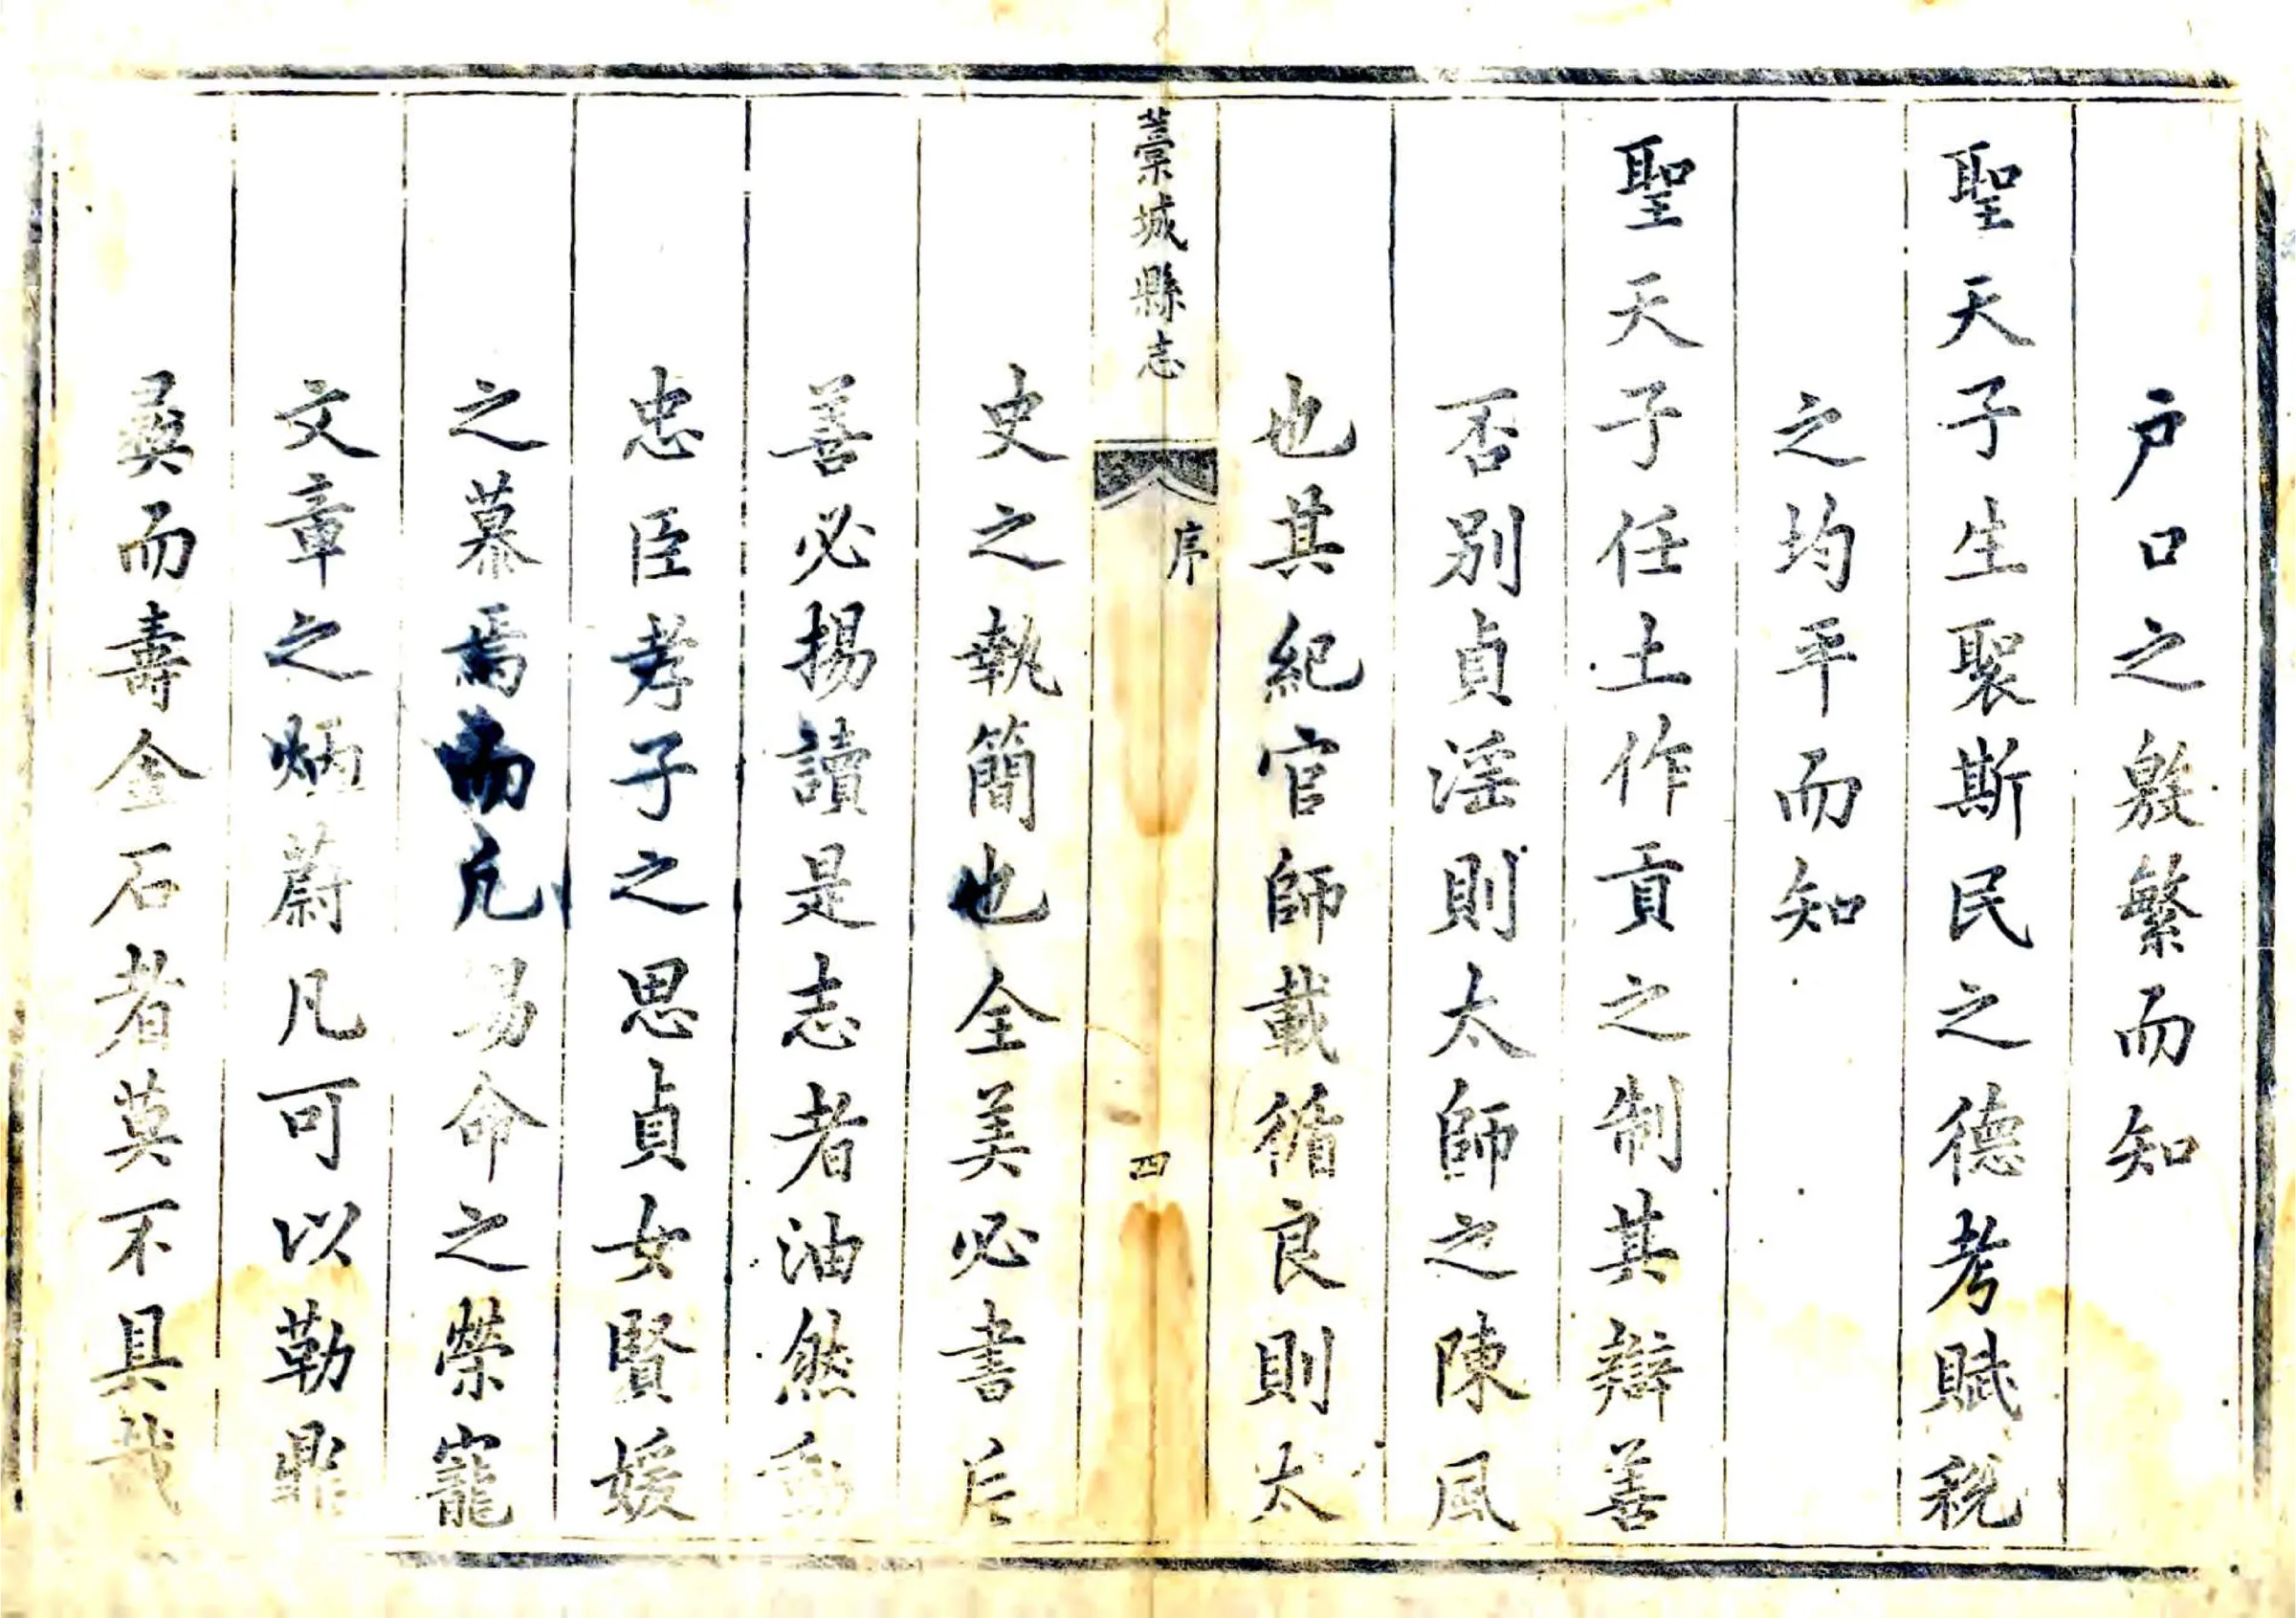 户口之殷繁而知
聖天子生聚斯民之德考賦稅
之均平而知
聖天子任土作貢之制其辯善
否別貞淫則太師之陳風
也其紀官師載循良則太
藁城縣志
序
四
史之執簡也全美必書片
善必揚讀是志者油然動
忠臣孝子之思貞女賢媛
之慕焉而凡錫命之榮寵
文章之炳蔚凡可以勒鼎
彝而壽金石者莫不具